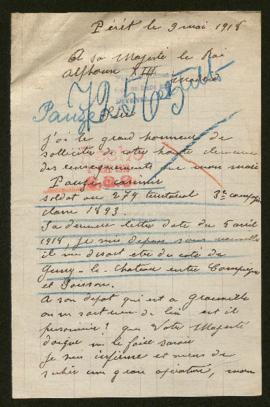 Péret le 9 mai 1918
A sa Majesté le Roi
Alphonse XIII
j'ai le grand honneur de
solliciter de votre haute clémence
des renseignements sur mon mari
Pauze
soldat au 279 territorial 3e comp
classe 1893.
Sa dernière lettre date du 5 avril
1918, je suis depuis sans nouvelle
il me disait être du côté de
le Château entre Compiègne
et Soissons.
A son dépôt qui est a Granville
on ne sait rien de lui est il
prisonnier? que Votre Majesté
daigne me le faire savoir
Je suis infirme et viens de
subir une grave opération, mon